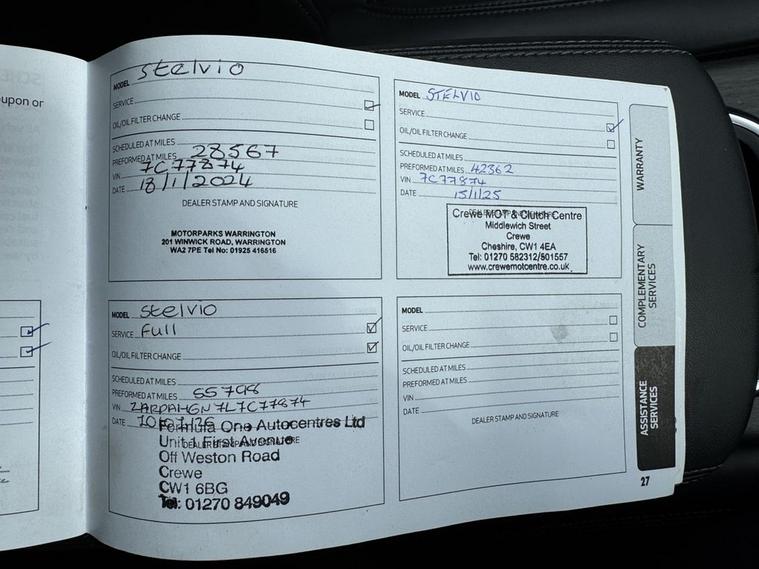 upon or
MODEL Stelvio
SERVICE
OIL/OIL FILTER CHANGE
SCHEDULED AT MILES
PREFORMED AT MILES 28567
VIN 7C77874
DATE 18/1/2024
DEALER STAMP AND SIGNATURE
MOTORPARKS WARRINGTON
201 WINWICK ROAD, WARRINGTON
WA2 7PE Tel No: 01925 416516
MODEL STELVIO
SERVICE
OIL/OIL FILTER CHANGE
SCHEDULED AT MILES
PREFORMED AT MILES 42362
VIN 7C77874
DATE 15/1/25
Crewe MOT & Clutch Centre
Middlewich Street
Crewe
Cheshire, CW1 4EA
Tel: 01270 582312/501557
www.crewemotcentre.co.uk
MODEL Stelvio
SERVICE Full
OIL/OIL FILTER CHANGE
SCHEDULED AT MILES
PREFORMED AT MILES 55798
VIN ZARPAHGN7L7C77874
DATE
Formula One Autocentres Ltd
Unit 1 First Avenue
DEALER STAMP AND SIGNATURE
Off Weston Road
Crewe
CW1 6BG
Tel: 01270 849049
MODEL
SERVICE
OIL/OIL FILTER CHANGE
SCHEDULED AT MILES
PREFORMED AT MILES
VIN
DATE
DEALER STAMP AND SIGNATURE
WARRANTY
COMPLEMENTARY
SERVICES
ASSISTANCE
SERVICES
27